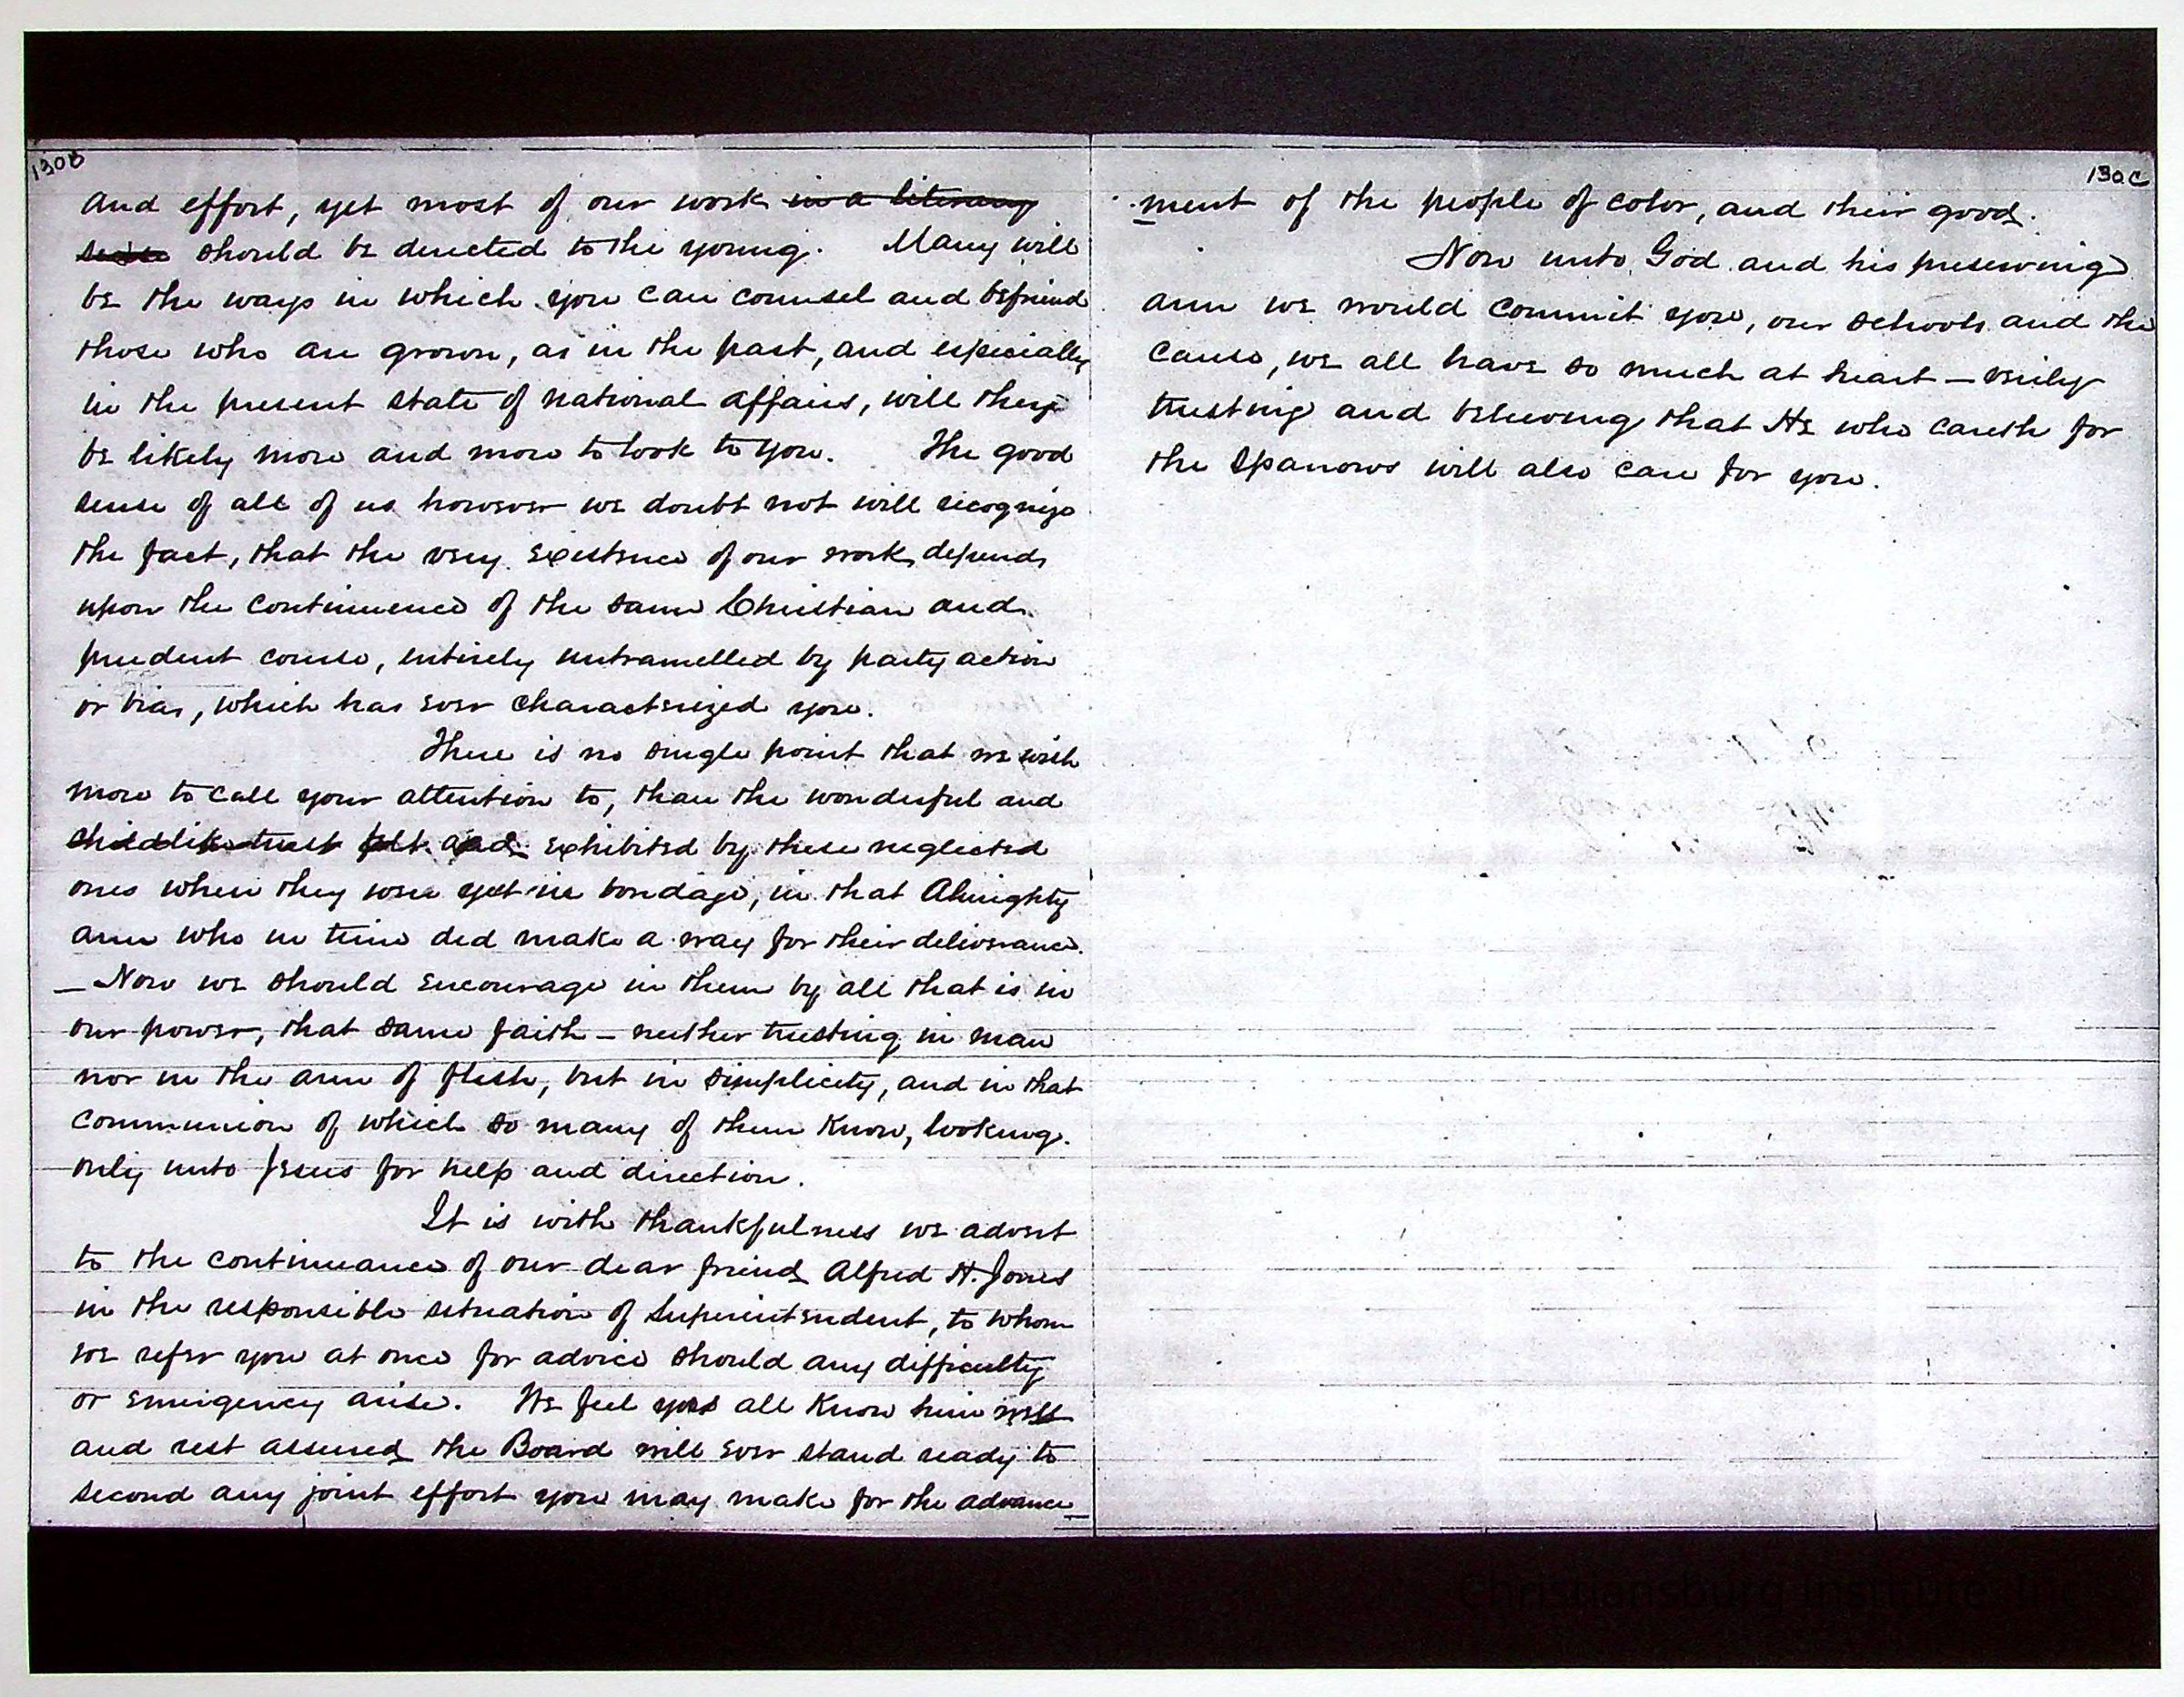 130B
and effort, yet most of our work in a literary
sense should be directed to the young. Many will
be the ways in which you can counsel and befriend
those who are grown, as in the past, and especially
in the present state of national affairs, will they
be likely more and more to look to you. The good
sense of all of us however we doubt not will recognize
the fact, that the very existence of our work depends
upon the continuence of the same Christian and
prudent course, entirely untramelled by party action
or bias, which has ever characterized you.
There is no single point that we wish
more to call your attention to, than the wonderful and
childlike trust felt and exhibited by these neglected
ones when they were yet in bondage, in that Almighty
arm who in time did make a way for their deliverance.
— Now we should encourage in them by all that is in
our power, that same faith — neither trusting in man
nor in the arm of flesh, but in simplicity, and in that
communion of which so many of them know, looking
only unto Jesus for help and direction.
It is with thankfulness we advert
to the continuance of our dear friend Alfred H. Jones
in the responsible situation of Superintendent, to whom
we refer you at once for advice should any difficulty
or emergency arise. We feel you all know him well
and rest assured the Board will ever stand ready to
second any joint effort you may make for the advance_
130C
ment of the people of color, and their good.
Now unto God and his preserving
arm we would commit you, our schools and the
cause, we all have so much at heart — verily
trusting and believing that He who careth for
the sparrows will also care for you.
Christiansburg Institute, Inc